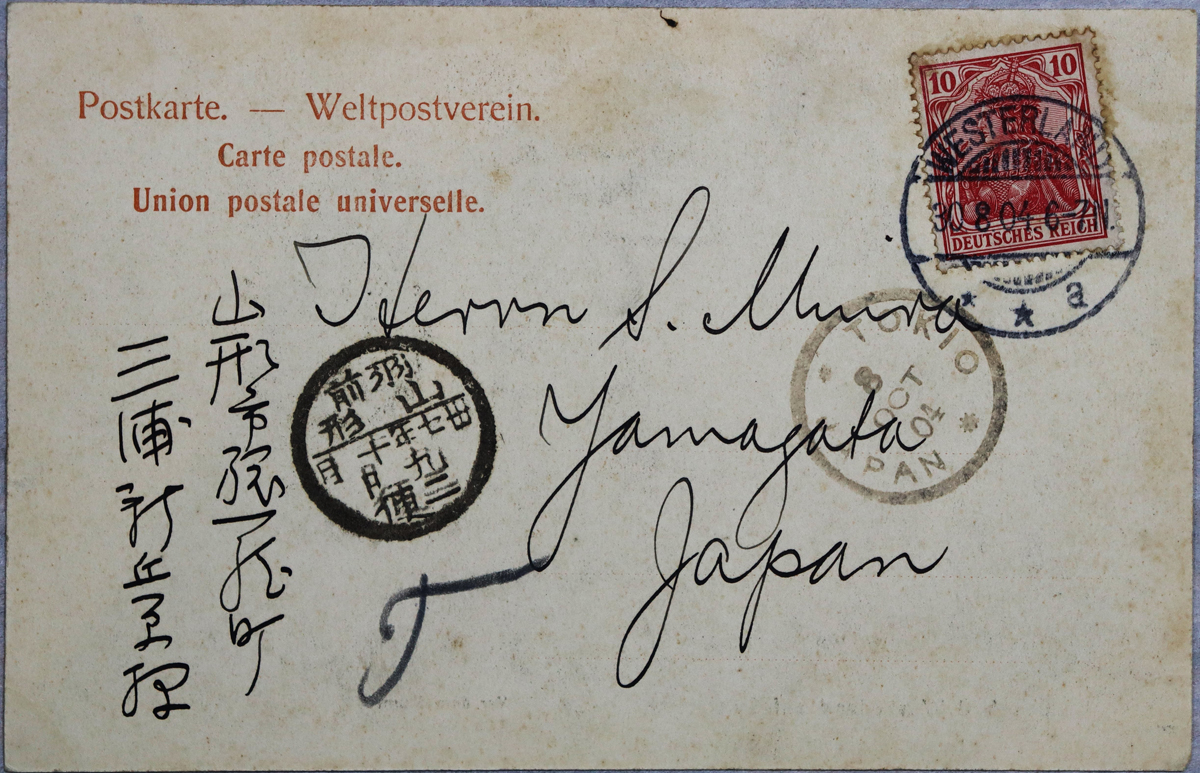 Postkarte. — Weltpostverein.
Carte postale.
Union postale universelle.
10 10
DEUTSCHES REICH
WESTERLAND
30.8.04.6-7N.
* * a
TOKIO
9
OCT
04
JAPAN
Herrn S. Miura
Yamagata
Japan
山形市旅籠町
三浦新
羽前
山形
卅七年
十月
九日
三便